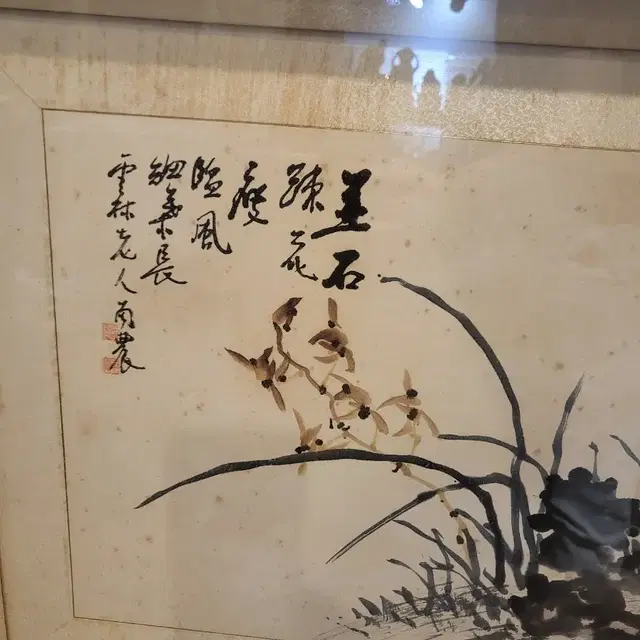 並石
疎花
瘦
臨風
細葉長
雲林老人南農